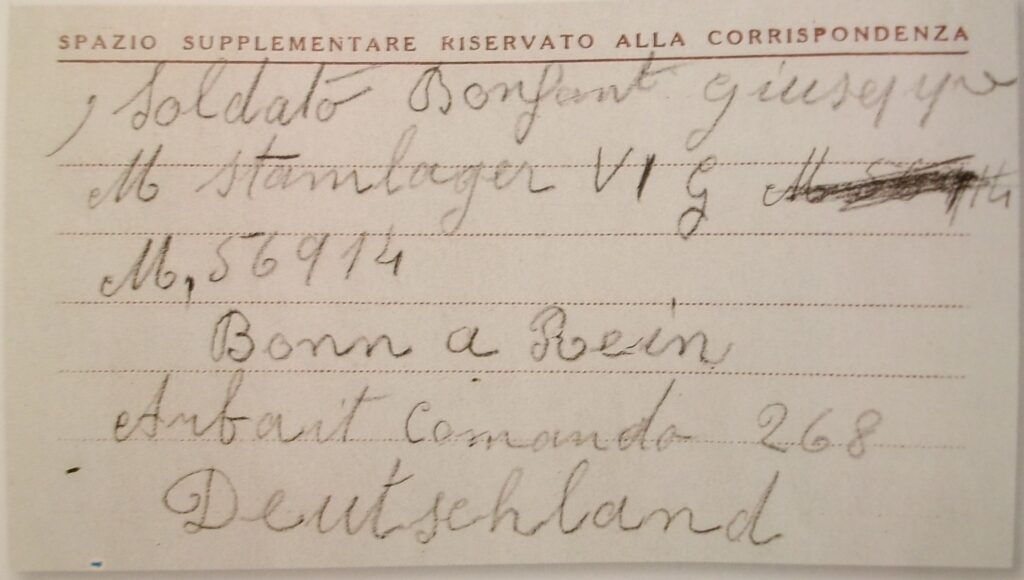 SPAZIO SUPPLEMENTARE RISERVATO ALLA CORRISPONDENZA
Soldato Bonfant Giuseppe
M Stamlager VI G
M, 56914
Bonn a Rein
Arbait Comando 268
Deutschland